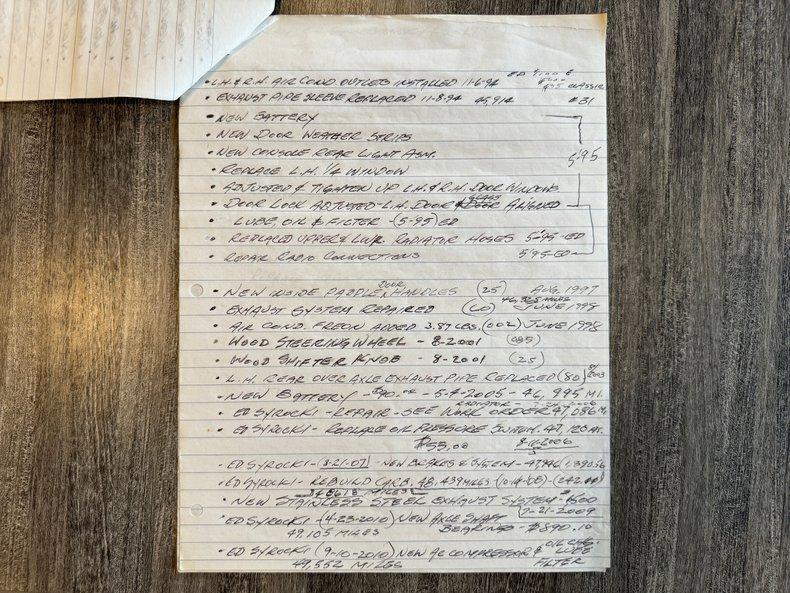 • L.H. & R.H. AIR COND OUTLETS INSTALLED 11-6-94 CLASSIC
• EXHAUST PIPE SLEEVE REPLACED 11-8-94 45,914 #31
• NEW BATTERY
• NEW DOOR WEATHER STRIPS
• NEW CONSOLE REAR LIGHT ASM. 5-95
• REPLACE L.H. 1/4 WINDOW
• ADJUSTED & TIGHTEN UP L.H. & R.H. DOOR WINDOWS
• DOOR LOCK ADJUSTED - L.H. DOOR GLASS ALIGNED
• LUBE, OIL & FILTER - (5-95) ED
• REPLACED UPPER & LWR. RADIATOR HOSES 5-95-ED
• REPAIR RADIO CONNECTIONS 5-95-ED
• NEW INSIDE PADDLE DOOR HANDLES (25) AUG. 1997
• EXHAUST SYSTEM REPAIRED (60) JUNE 1998
• AIR COND. FREON ADDED 3.87 LBS. (002) JUNE 1998
• WOOD STEERING WHEEL - 8-2001
• WOOD SHIFTER KNOB - 8-2001 (25)
• L.H. REAR OVER AXLE EXHAUST PIPE REPLACED (80) 2003
• NEW BATTERY - $90.00 - 5-4-2005 - 46,995 MI.
RADIATOR
• ED SYROCKI - REPAIR - SEE WORK ORDER 47,086 M.
• ED SYROCKI - REPLACE OIL PRESSURE SWITCH. 47,120 MI.
$55.00 2006
• ED SYROCKI - (3-21-07) - NEW BRAKES & SYSTEM - 47,946
• ED SYROCKI - REBUILD CARB. 48,439 MILES (10-14-08)
48618 MILES
• NEW STAINLESS STEEL EXHAUST SYSTEM $1600
(7-21-2009
• ED SYROCKI (4-23-2010) NEW AXLE SHAFT
49,105 MILES BEARINGS - $890.10
• ED SYROCKI (9-10-2010) NEW AC COMPRESSOR & OIL CHG. LUBE
49,552 MILES FILTER